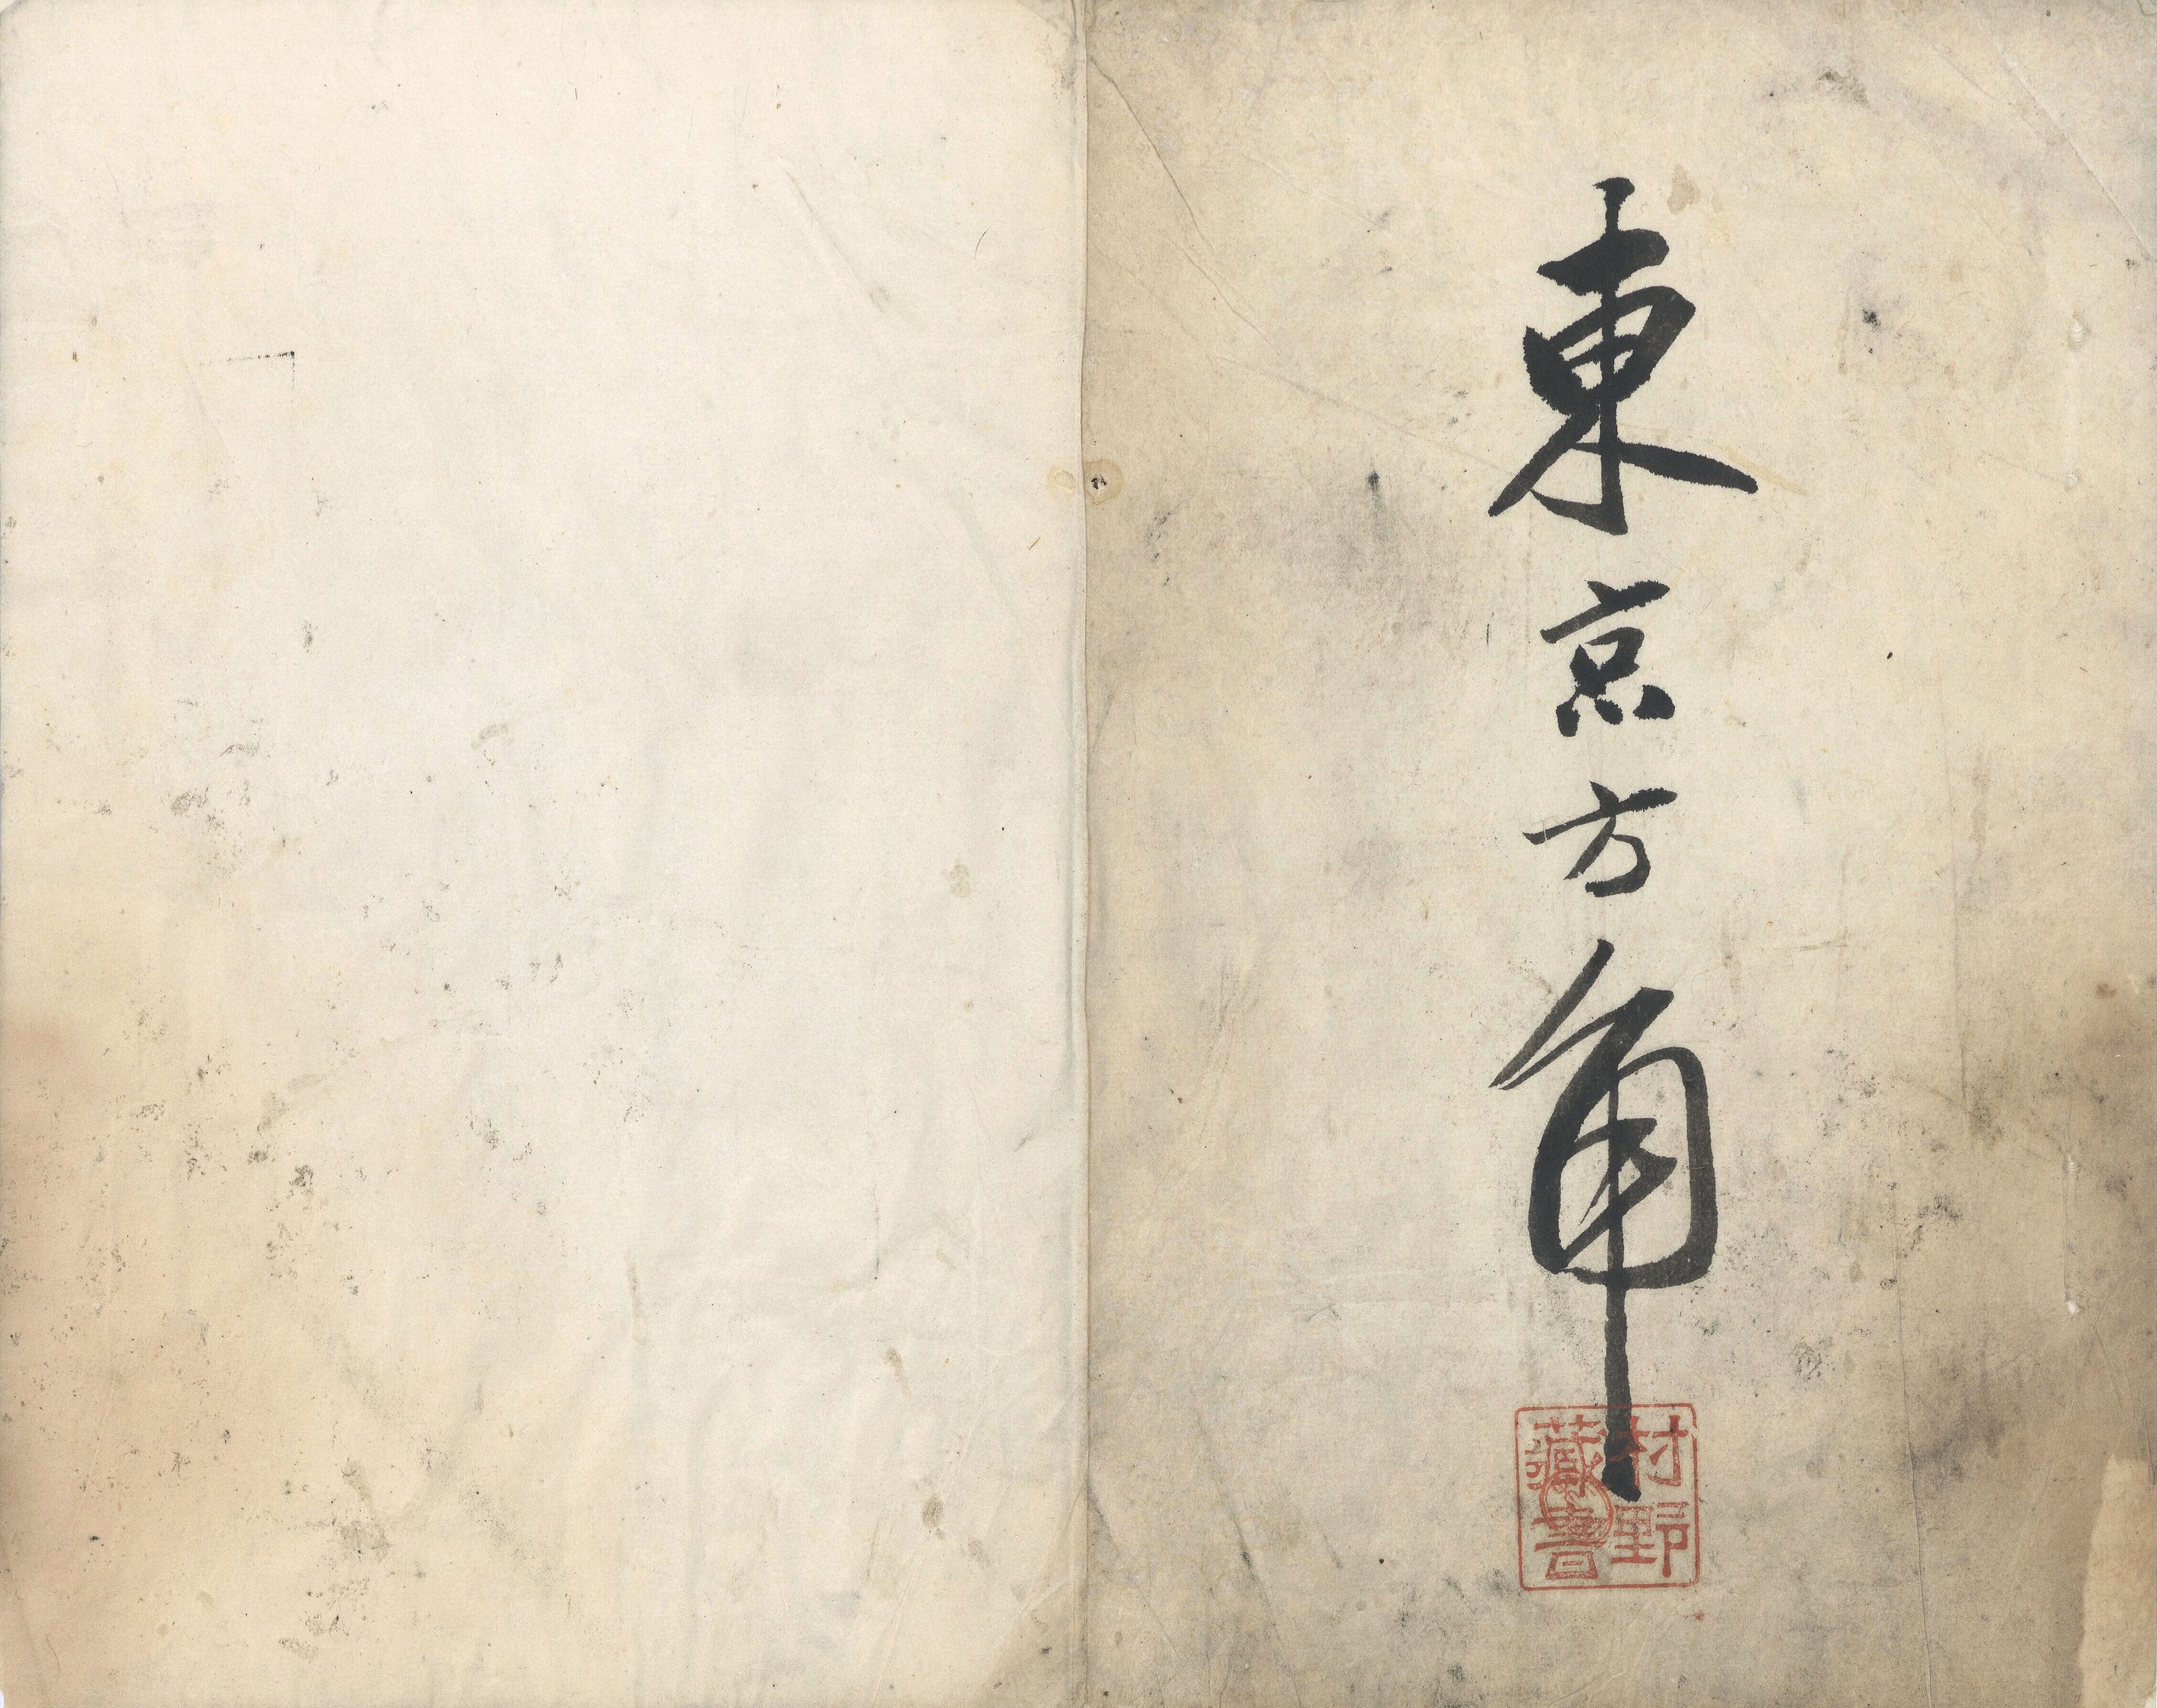 東京方角
村野
藏書